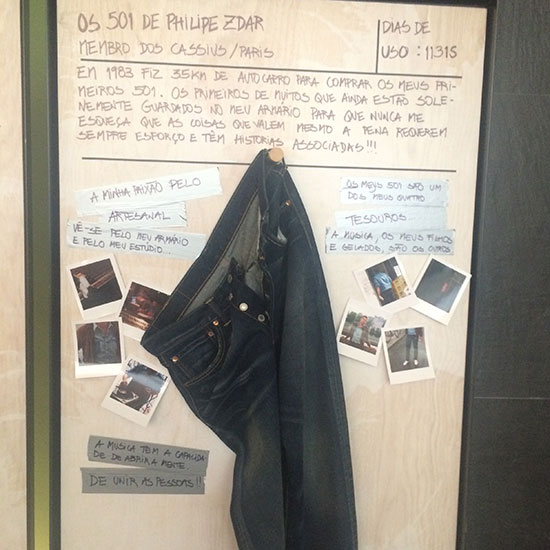 OS 501 DE PHILIPE ZDAR
MEMBRO DOS CASSIUS/PARIS
DIAS DE
USO: 11315
EM 1983 FIZ 35KM DE AUTOCARRO PARA COMPRAR OS MEUS PRI-
MEIROS 501. OS PRIMEIROS DE MUITOS QUE AINDA ESTÃO SOLE-
NEMENTE GUARDADOS NO MEU ARMÁRIO PARA QUE NUNCA ME
ESQUEÇA QUE AS COISAS QUE VALEM MESMO A PENA REQUEREM
SEMPRE ESFORÇO E TÊM HISTORIAS ASSOCIADAS!!!
A MINHA PAIXÃO PELO
ARTESANAL
VÊ-SE PELO MEU ARMÁRIO
E PELO MEU ESTÚDIO...
OS MEUS 501 SÃO UM
DOS MEUS QUATRO
TESOUROS
A MUSICA, OS MEUS FILHOS
E GELADOS, SÃO OS OUTROS
A MUSICA TEM A CAPACIDA
DE DE ABRIR A MENTE
DE UNIR AS PESSOAS!!